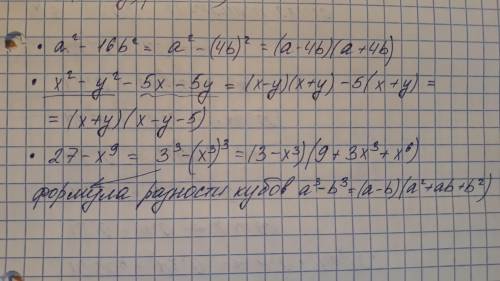 • a² - 16b² = a² - (4b)² = (a-4b)(a+4b)
• x² - y² - 5x - 5y = (x-y)(x+y) - 5(x+y) =
= (x+y)(x-y-5)
• 27 - x⁹ = 3³ - (x³)³ = (3-x³)(9+3x³+x⁶)
формула разности кубов a³-b³=(a-b)(a²+ab+b²)